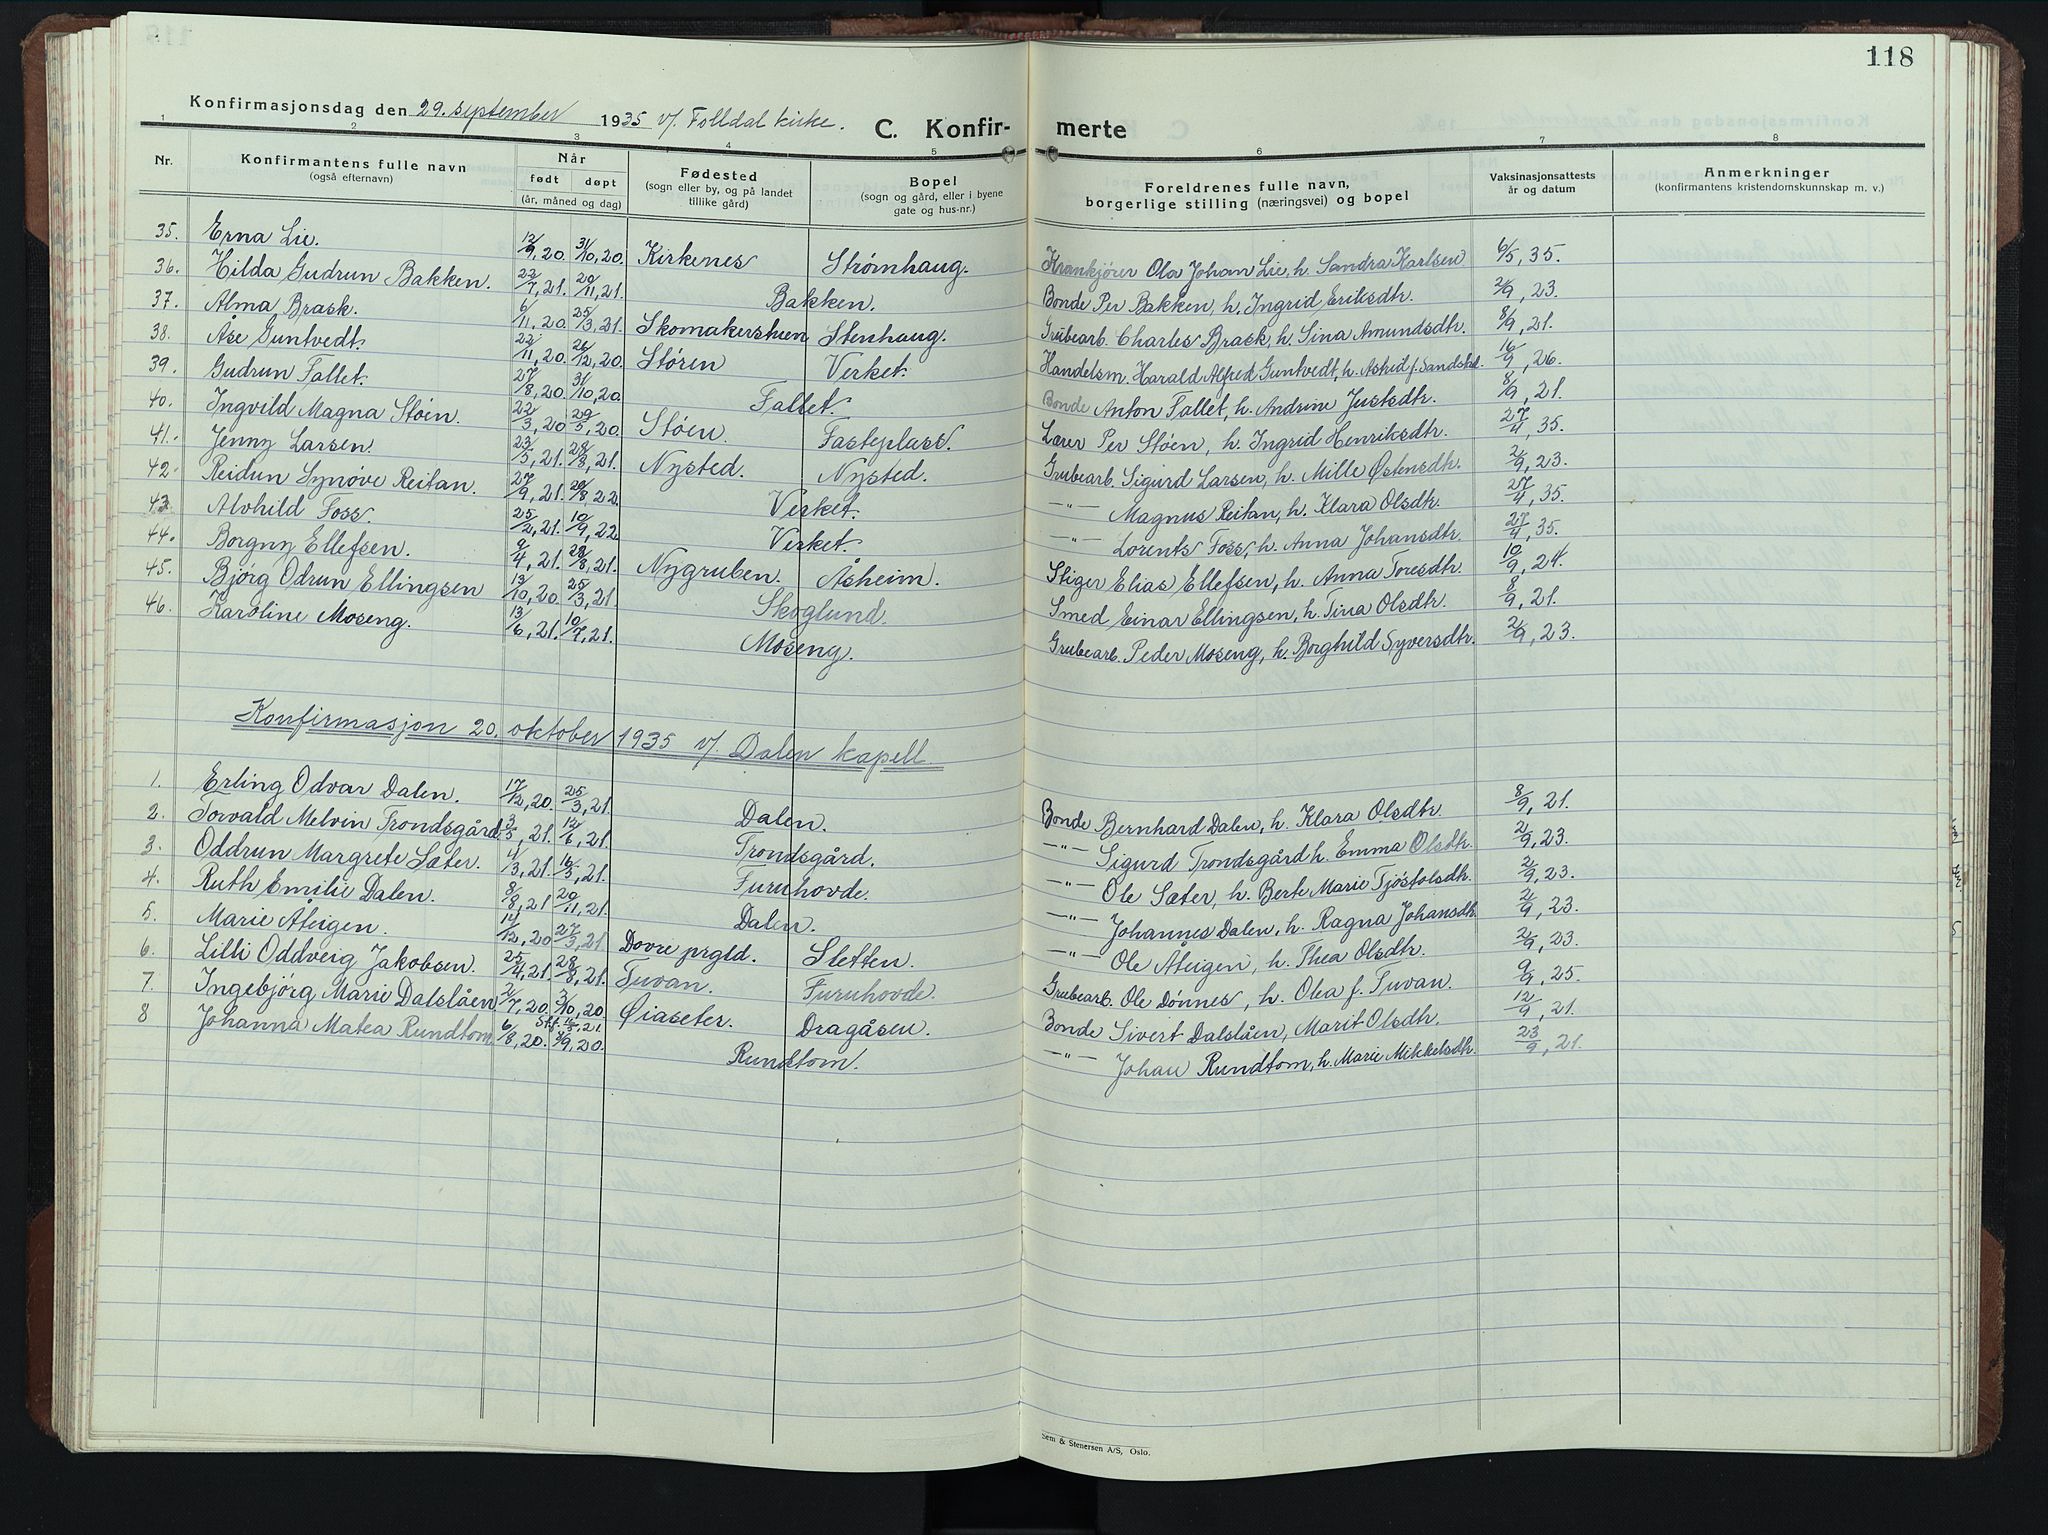 118
Konfirmasjonsdag den 29. september 1935 v/. Folldal kirke.
C. Konfir- merte
1 2 3 4 5 6 7 8
Nr. Konfirmantens fulle navn (også efternavn) Når født døpt (år, måned og dag) Fødested (sogn eller by, og på landet tillike gård) Bopel (sogn og gård, eller i byene gate og hus-nr.) Foreldrenes fulle navn, borgerlige stilling (næringsvei) og bopel Vaksinasjonsattests år og datum Anmerkninger (konfirmantens kristendomskunnskap m. v.)
35. Erna Lie. 12/9, 20. 31/10, 20. Kirkenes Strømhaug. Krankjører Ola Johan Lie, h. Sandra Karlsen 6/5, 35.
36. Hilda Gudrun Bakken. 22/7, 21. 20/11, 21. Bakken. Bonde Per Bakken, h. Ingrid Eriksdtr. 2/9, 23.
37. Alma Brask. 6/11, 20. 25/3, 21. Skomakerstuen Stenhaug. Grubearb. Charles Brask, h. Sina Amundsdtr. 8/9, 21.
38. Åse Guntvedt. 22/11, 20. 26/12, 20. Støren Verket. Handelsm. Harald Alfred Guntvedt, h. Astrid f. 16/9, 26.
39. Gudrun Fallet. 27/8, 20. 31/10, 20. Fallet. Bonde Anton Fallet, h. Andrine Justsdtr. 8/9, 21.
40. Ingvild Magna Støen. 22/3, 20 29/5, 20. Støen Fasteplass. Lærer Per Støen, h. Ingrid Henriksdtr. 27/4, 35.
41. Jenny Larsen. 23/5, 21. 28/8, 21. Nysted. Nysted. Grubearb. Sigurd Larsen, h. Mille Østensdtr. 2/9, 23.
42. Reidun Synøve Reitan. 27/9, 21. 20/8 22. Verket. —"— Magnus Reitan, h. Klara Olsdtr. 27/4, 35.
43. Alvhild Foss. 25/2, 21. 10/9, 22 Verket. —"— Lorents Foss, h. Anna Johansdtr. 27/4, 35.
44. Borgny Ellefsen. 9/4, 21. 28/8, 21. Nygruben. Åsheim. Stiger Elias Ellefsen, h. Anna Toresdtr. 10/9, 24.
45. Bjørg Odrun Ellingsen 13/10, 20. 25/3, 21. Skoglund. Smed Einar Ellingsen, h. Tina Olsdtr. 8/9, 21.
46. Karoline Moseng. 13/6, 21. 10/7, 21. Moseng. Grubearb. Peder Moseng, h. Borghild Syversdtr. 2/9, 23.
Konfirmasjon 20. oktober 1935 v/. Dalen kapell.
1. Erling Odvar Dalen. 17/12, 20. 25/3, 21. Dalen. Bonde Bernhard Dalen, h. Klara Olsdtr. 8/9, 21.
2. Torvald Melvin Trondsgård. 3/5, 21. 12/6, 21. Trondsgård. —"— Sigurd Trondsgård h. Emma Olsdtr. 2/9, 23.
3. Oddrun Margrete Sæter. 4/3, 21. 16/3, 21. Furuhovde. —"— Ole Sæter, h. Berte Marie Tjøstolsdtr. 2/9, 23.
4. Ruth Emilie Dalen. 8/8, 21 20/11, 21. Dalen. —"— Johannes Dalen, h. Ragna Johansdtr. 2/9, 23.
5. Marie Åteigen. 14/12, 20 27/3, 21. Dovre prgld. Sletten. —"— Ole Åteigen, h. Thea Olsdtr. 2/9, 23.
6. Lilli Oddveig Jakobsen. 25/4, 21. 28/8, 21. Tuvan. Furuhovde. Grubearb. Ole Dønnes, h. Olea f. Tuvan. 9/9, 25.
7. Ingebjörg Marie Dalslåen 2/7, 20. 3/10, 20 Øiaseter. Dragåsen. Bonde Sivert Dalslåen, Marit Olsdtr. 12/9, 21.
8 Johanna Matea Rundtom. 6/8, 20. 3/9, 20. Rundtom. —"— Johan Rundtom, h. Marie Mikkelsdtr. 23/9, 21.
Sem & Stenersen A/S, Oslo.